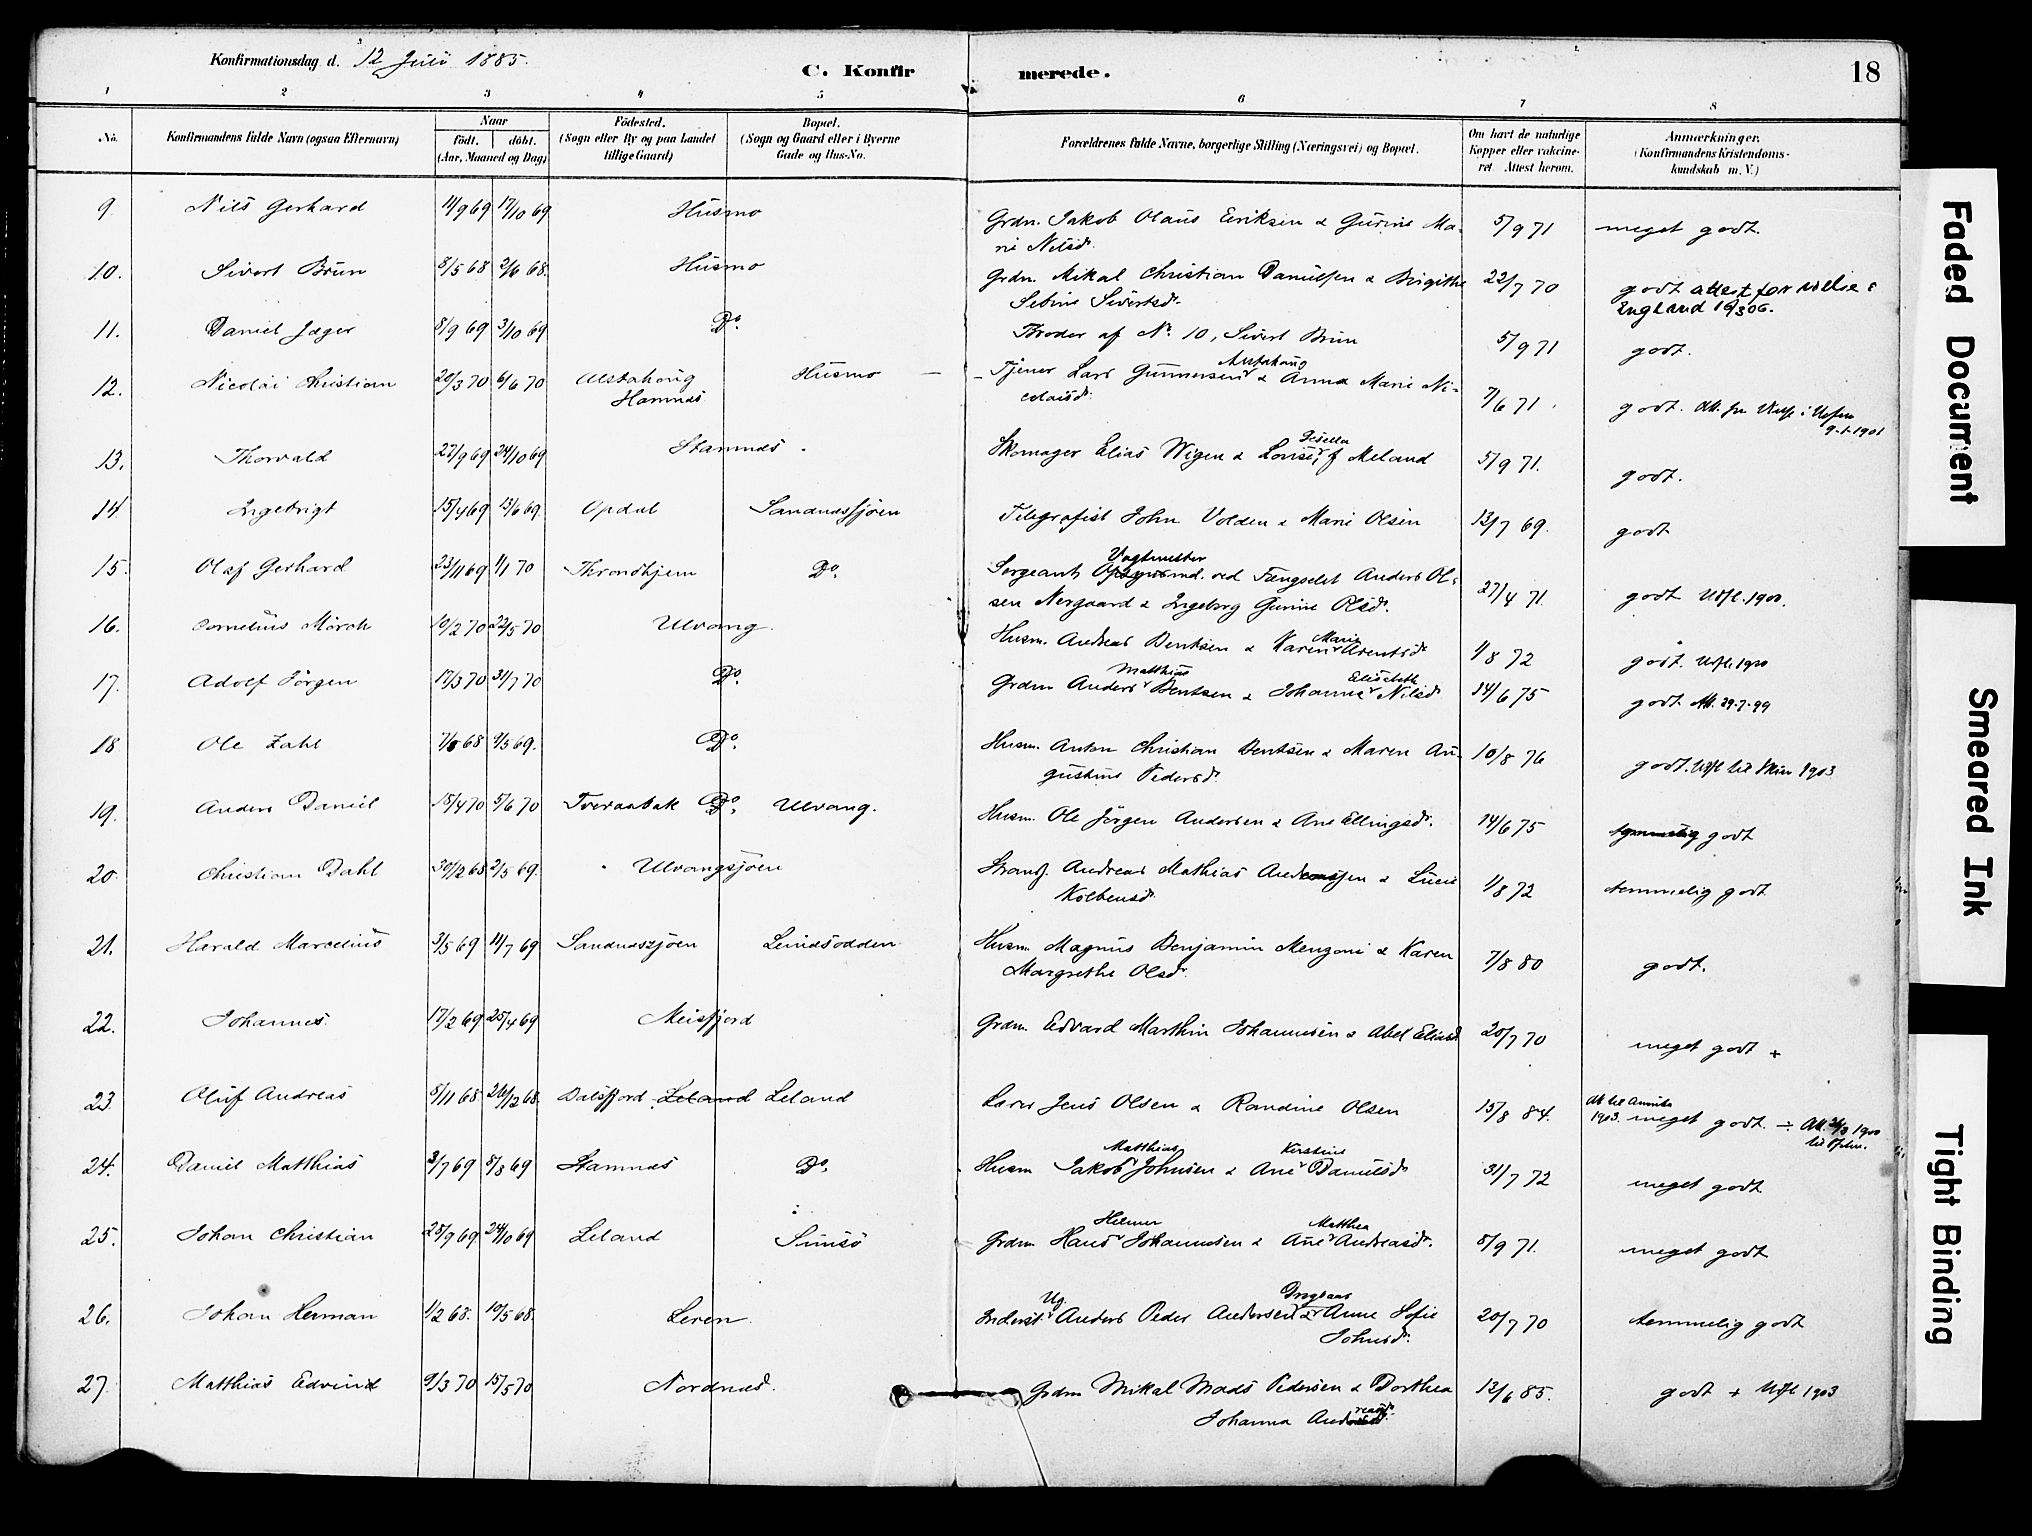 Konfirmationsdag d. 12 Juli 1885.
C. Konfir merede. 18
1 2 3 4 5 6 7 8
No. Konfirmandens fulde Navn (ogsaa Efternavn) Naar födt. döbt. (Aar, Maaned og Dag) Födested. (Sogn eller By og paa Landet tillige Gaard) Bopæl. (Sogn og Gaard eller i Byerne Gade og Hus-No. Forældrenes fulde Navne, borgerlige Stilling (Næringsvei) og Bopæl. Om havt de naturlige Kopper eller vakcineret Attest herom. Anmærkninger. (Konfirmandens Kristendomskundskab m. V.)
9. Nils Gerhard 14/9 69 17/10 69 Husmo Grdm. Jakob Olaus Eeriksen & Gurine Ma- 5/9 71 meget godt.
rie Nilsdr.
10. Sivert Brun 8/5 68 2/6 68. Husmo Grdm. Mikal Christian Danielsen & Birgithe 22/7 70 godt attest for
Sebine Sivertsdr. England
11. Daniel Jæger 8/9 69 3/10 69 Do. Broder af No. 10, Sivert Brun 5/9 71 godt.
12. Nicolai Christian 20/3 70 6/6 70 Alstahoug Husmo Tjener Lars Gunnersen Alstahoug & Anna Marie Ni- 7/6 71 godt.
Hamnes colaisdr. 9-1-1901
13. Thorvald 27/9 69 24/10 69 Stamnes Skomager Elias Wigen & Lovise, f Meland 5/9 71. godt.
14 Ingebrigt 15/4 69 13/6 69. Opdal Sandnessjøen Telegrafist John Volden & Marie Olsen 13/7 69. godt
15. Olaf Gerhard 23/11 69 1/1 70 Throndhjem Do. Sergeant Vagtmester ved Fængselet Anders Ol- 27/4 71. godt Utfl. 1900.
sen Nergaard & Ingeborg Gurine Olsdr.
16. Cornelius Mörch 10/2 70 22/5 70 Ulvang. Husm. Andreas Bentsen & Karen Marie Arentsdr 1/8 72 godt. Utfl. 1900
17. Adolf Jörgen 17/3 70 31/7 70 Do. Grdm Anders Matthias Bentsen & Johanne Elisabeth Nilsdr 14/6 75 godt Att. 29-7-99
18 Ole Zahl 68 69. Do. Husm. Anton Christian Bentsen & Maren Au- 10/8 76 godt. Utfl til 1903
gustine Pedersdr.
19. Anders Daniel 18/4 70 5/6 70 Tveraabak Do. Ulvang. Husm. Ole Jörgen Andersen & Ane Ellingsdr. 14/6 75 temmelig godt
20. Christian Dahl 30/12 68 2/5 69. Ulvangsjøen Strands. Andreas Mathias Andersen & Lucie 1/8 72 temmelig godt
Kolbensdr.
21. Harald Marcelius 3/5 69 11/7 69 Sandnessjøen Leinesodden Husm. Magnus Benjamin Menzoni & Karen 7/8 80 godt.
Margrethe Olsdr.
22. Johannes. 17/2 69 25/4 69 Meisfjord Grdm. Edvard Marthin Johannesen & Abel Eliasdr 20/7 70 meget godt +
23. Oluf Andreas 8/11 68 26/12 68. Dalsfjord Leland Leland Jens Olsen & Randine Olsen 15/8 84. Att til Amerika
1903. meget godt. 1900
24. Daniel Matthias 3/7 69 8/8 69 Stamnes Do. Husm Jakob Matthias Johnsen & Ane Kirstine Danielsdr 31/7 72 meget godt
25. Johan Christian 28/9 69 24/10 69 Leland Simsö Grdm. Hans Helmer Johannesen & Ane Matthea Andreasdr. 5/9 71. meget godt
26. Johan Herman 1/2 68. 10/5 68. Leren. Inderst Ug. Anders Peder Andersen & Anne Sofie 20/7 70 temmelig godt
Johnsdr.
27. Matthias Edvind 9/3 70 15/5 70 Nordnæs. Grdm Mikal Mads Pedersen & Dorthea 12/6 85. godt + Utfl 1903
Johanna Andreasdr.
Faded Document
Smeared Ink
Tight Binding